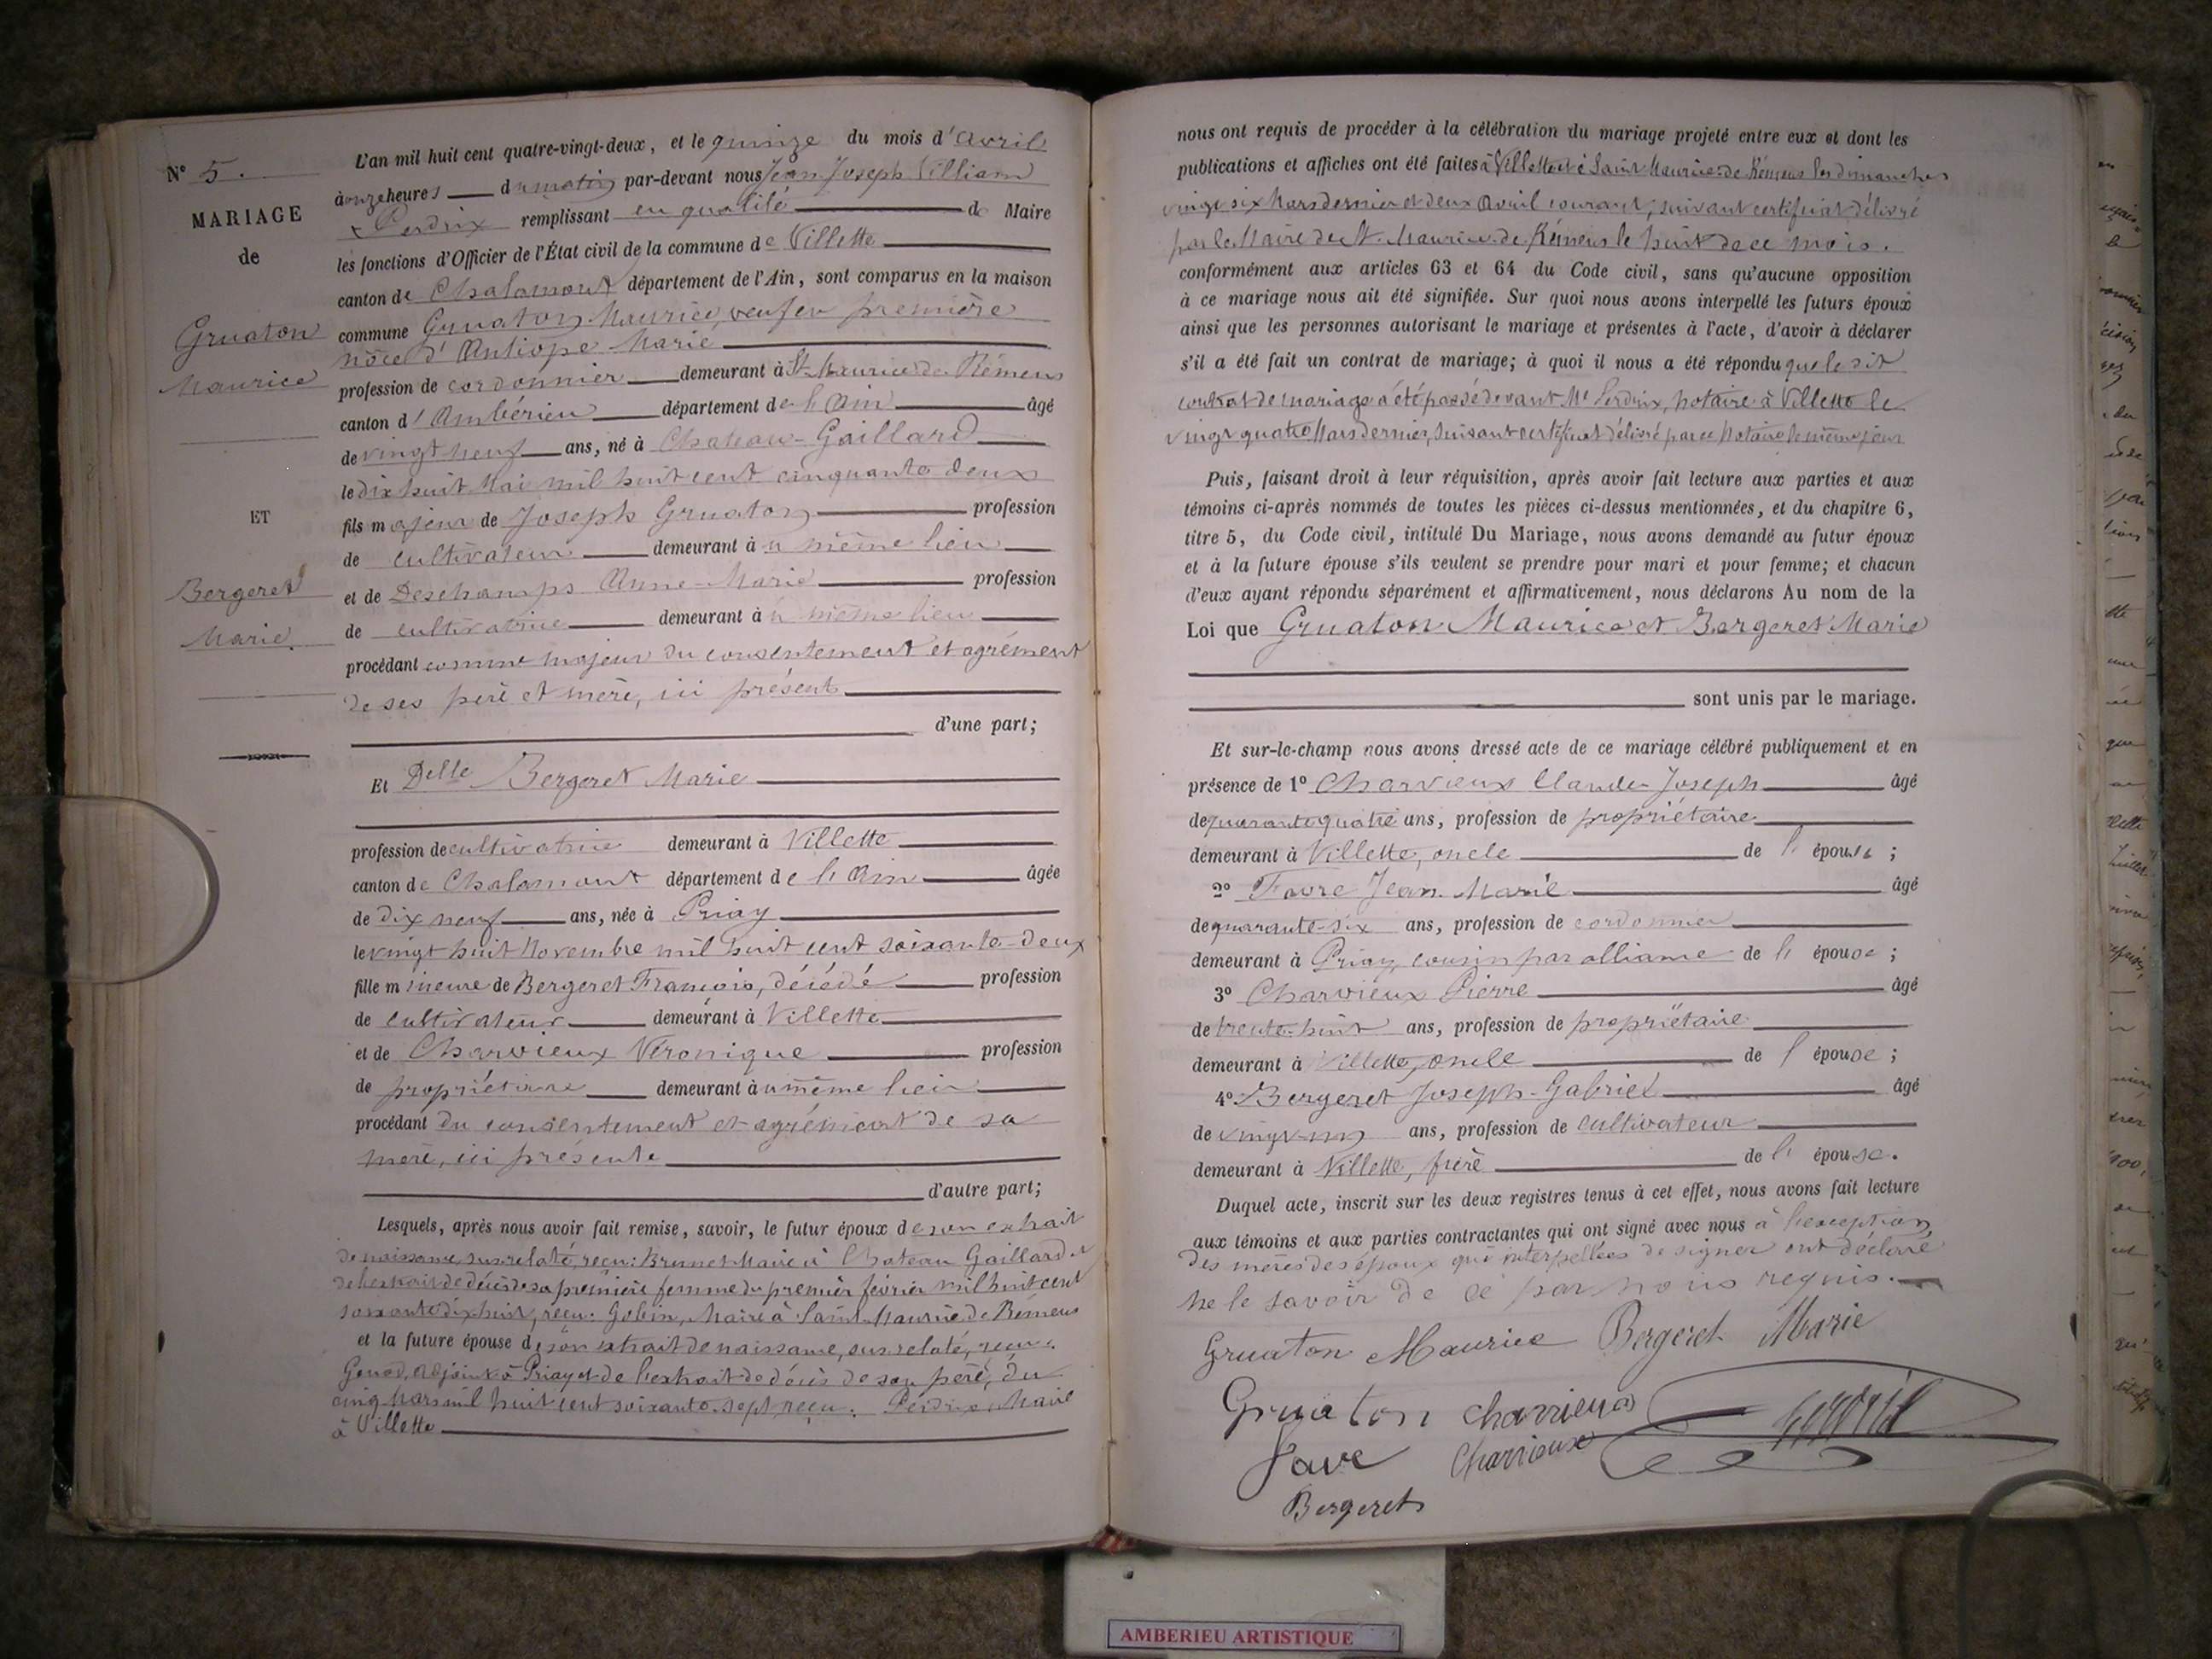 N° 5.
MARIAGE
de
Gruaton
Maurice
ET
Bergeret
Marie.
L'an mil huit cent quatre-vingt-deux, et le quinze du mois d'avril
à onze heures du matin par-devant nous Jean Joseph Villiam
Perdrix remplissant en qualité de Maire
les fonctions d'Officier de l'État civil de la commune de Villette
canton de Chalamont département de l'Ain, sont comparus en la maison
commune Gruaton Maurice, veuf en première
nôce d'Antiope Marie
profession de cordonnier demeurant à St Maurice de Rémens
canton d'Ambérieu département de l'Ain âgé
de vingt neuf ans, né à Chateau-Gaillard
le dix huit Mai mil huit cent cinquante deux
fils majeur de Joseph Gruaton profession
de cultivateur demeurant à u même lieu
et de Deschamps Anne-Marie profession
de cultivatrice demeurant à u même lieu
procédant comme majeur du consentement et agrément
de ses père et mère, ici présents
d'une part;
Et Delle Bergeret Marie
profession de cultivatrice demeurant à Villette
canton de Chalamont département de l'Ain âgée
de dix neuf ans, née à Priay
le vingt huit Novembre mil huit cent soixante-deux
fille mineure de Bergeret François, décédé profession
de cultivateur demeurant à Villette
et de Charvieux Véronique profession
de propriétaire demeurant à u même lieu
procédant du consentement et agrément de sa
mère, ici présente
d'autre part;
Lesquels, après nous avoir fait remise, savoir, le futur époux de son extrait
de naissance, susrelaté, reçu: Brunet Maire à Chateau Gaillard et
de l'extrait de décès de sa première femme du premier février mil huit cent
soixante dix huit, reçu: Gobin, Maire à Saint-Maurice de Rémens
et la future épouse de son extrait de naissance, susrelaté, reçu:
adjoint à Priay et de l'extrait de décès de son père, du
cinq Mars mil huit cent soixante-sept reçu: Perdrix, Maire
à Villette
nous ont requis de procéder à la célébration du mariage projeté entre eux et dont les
publications et affiches ont été faites à Villette et à Saint Maurice de Rémens les dimanches
vingt six Mars dernier et deux Avril courant, suivant certificat délivré
par le Maire de St. Maurice de Rémens le huit de ce mois.
conformément aux articles 63 et 64 du Code civil, sans qu'aucune opposition
à ce mariage nous ait été signifiée. Sur quoi nous avons interpellé les futurs époux
ainsi que les personnes autorisant le mariage et présentes à l'acte, d'avoir à déclarer
s'il a été fait un contrat de mariage; à quoi il nous a été répondu que le dit
contrat de mariage a été passé devant Me Perdrix, notaire à Villette le
vingt quatre Mars dernier, suivant certificat délivré par ce Notaire le même jour
Puis, faisant droit à leur réquisition, après avoir fait lecture aux parties et aux
témoins ci-après nommés de toutes les pièces ci-dessus mentionnées, et du chapitre 6,
titre 5, du Code civil, intitulé Du Mariage, nous avons demandé au futur époux
et à la future épouse s'ils veulent se prendre pour mari et pour femme; et chacun
d'eux ayant répondu séparément et affirmativement, nous déclarons Au nom de la
Loi que Gruaton Maurice et Bergeret Marie
sont unis par le mariage.
Et sur-le-champ nous avons dressé acte de ce mariage célébré publiquement et en
présence de 1° Charvieux Claude Joseph âgé
de quarante quatre ans, profession de propriétaire
demeurant à Villette, oncle de l'épouse;
2° Favre Jean Marie âgé
de quarante-six ans, profession de cordonnier
demeurant à Priay, cousin par alliance de l'épouse;
3° Charvieux Pierre âgé
de trente-huit ans, profession de propriétaire
demeurant à Villette, oncle de l'épouse;
4° Bergeret Joseph-Gabriel âgé
de vingt un ans, profession de cultivateur
demeurant à Villette, frère de l'épouse.
Duquel acte, inscrit sur les deux registres tenus à cet effet, nous avons fait lecture
aux témoins et aux parties contractantes qui ont signé avec nous à l'exception
des mères des époux qui interpellées de signer ont déclaré
ne le savoir de ce par nous requis.
Gruaton Maurice Bergeret Marie
Gruaton Charvieux Perdrix
Favre Charvieux
Bergeret
AMBERIEU ARTISTIQUE